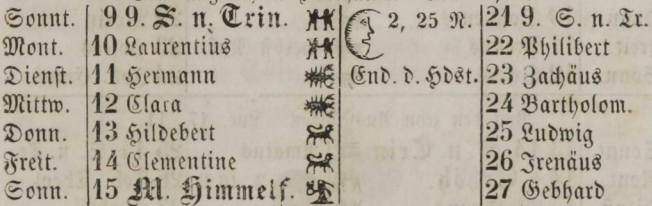 Sonnt. 9 9. S. n. Trin. 2, 25 N. 21 9. S. n. Tr.
Mont. 10 Laurentius 22 Philibert
Dienst. 11 Hermann End. d. Hdst. 23 Zachäus
Mittw. 12 Clara 24 Bartholom.
Donn. 13 Hildebert 25 Ludwig
Freit. 14 Clementine 26 Irenäus
Sonn. 15 M. Himmelf. 27 Gebhard